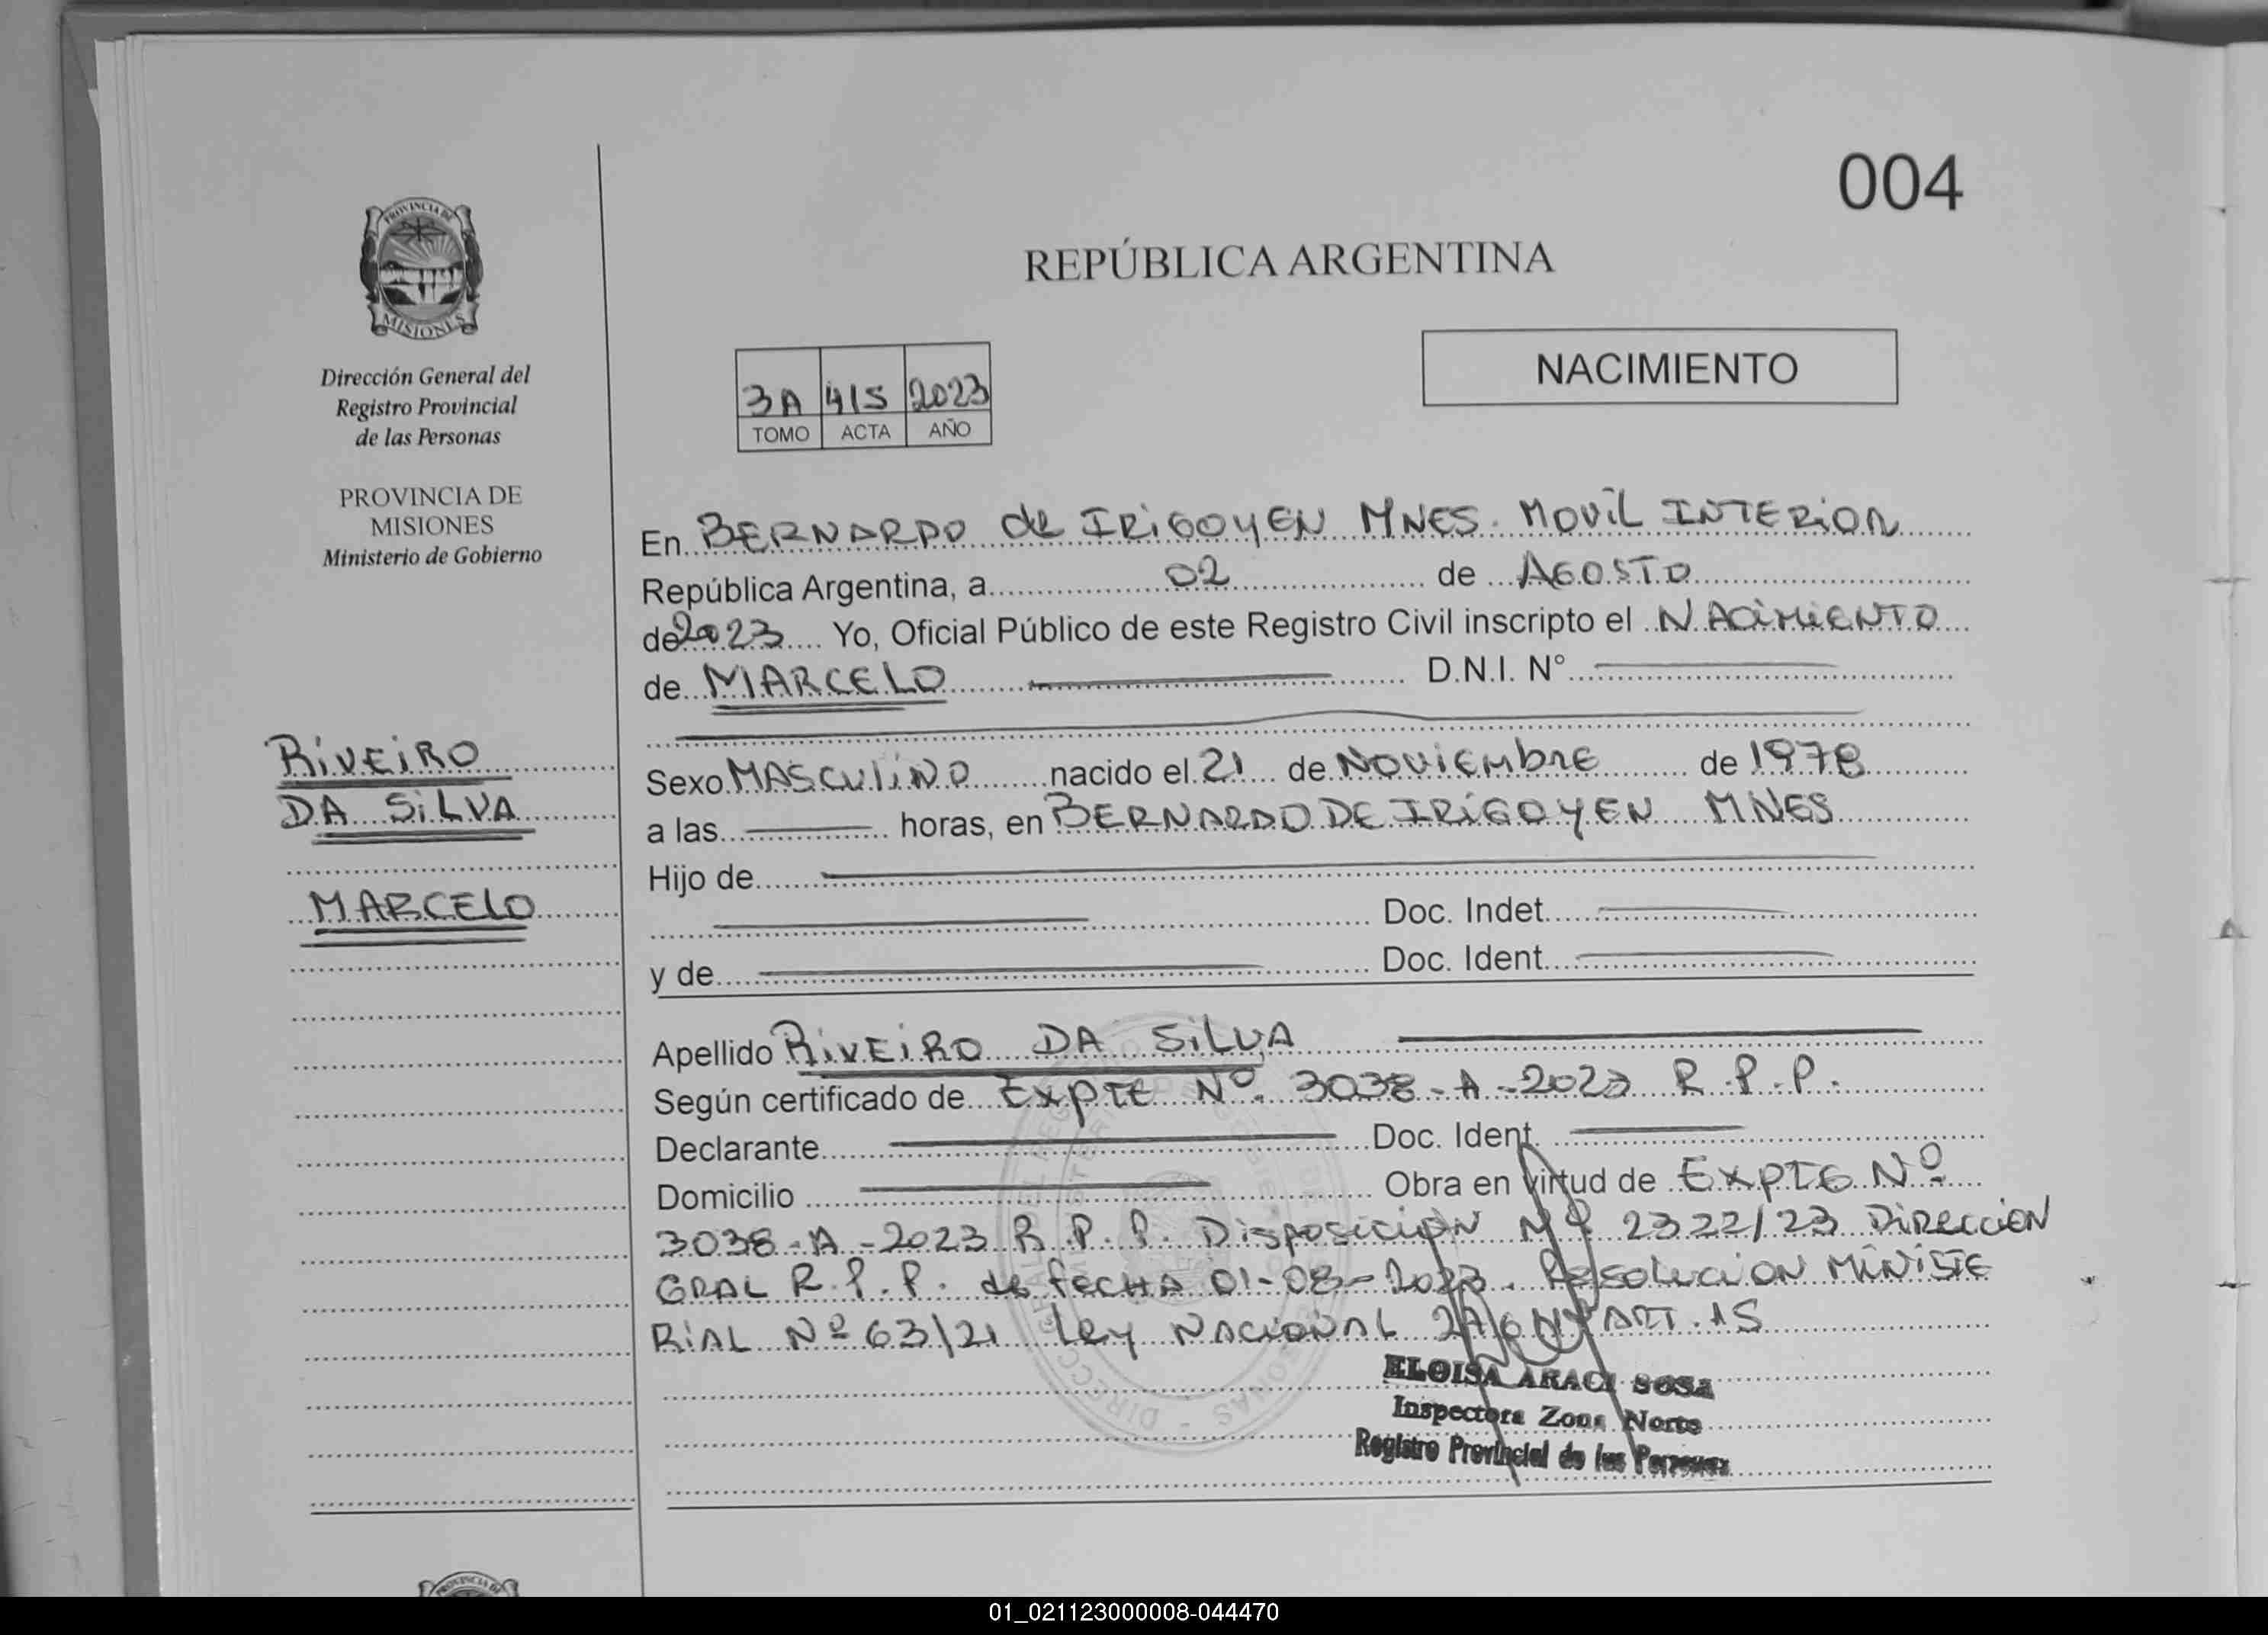 004
PROVINCIA DE
MISIONES
Dirección General del
Registro Provincial
de las Personas
PROVINCIA DE
MISIONES
Ministerio de Gobierno
RIVEIRO
DA SILVA
MARCELO
REPÚBLICA ARGENTINA
NACIMIENTO
3A 415 2023
TOMO ACTA AÑO
En BERNARDO de IRIGOYEN MNES. MOVIL INTERIOR
República Argentina, a 02 de AGOSTO
de 2023 Yo, Oficial Público de este Registro Civil inscripto el NACIMIENTO
de MARCELO D.N.I. N°
Sexo MASCULINO nacido el 21 de NOVIEMbRE de 1978
a las horas, en BERNARDO DE IRIGOYEN MNES
Hijo de
Doc. Indet.
y de Doc. Ident.
Apellido RIVEIRO DA SILVA
Según certificado de EXPTE Nº. 3038-A-2023 R.P.P.
Declarante Doc. Ident.
Domicilio Obra en virtud de EXPTE Nº
3038-A-2023 R.P.P. DISPOSICIÓN Nº 2322/23 DIRECCIÓN
GRAL R.P.P. de FECHA 01-08-2023. RESOLUCION MINISTE
RIAL Nº 63/21 LEY NACIONAL ART. 15
ELOISA ARACI SOSA
Inspectora Zona Norte
Registro Provincial de las Personas
01_021123000008-044470